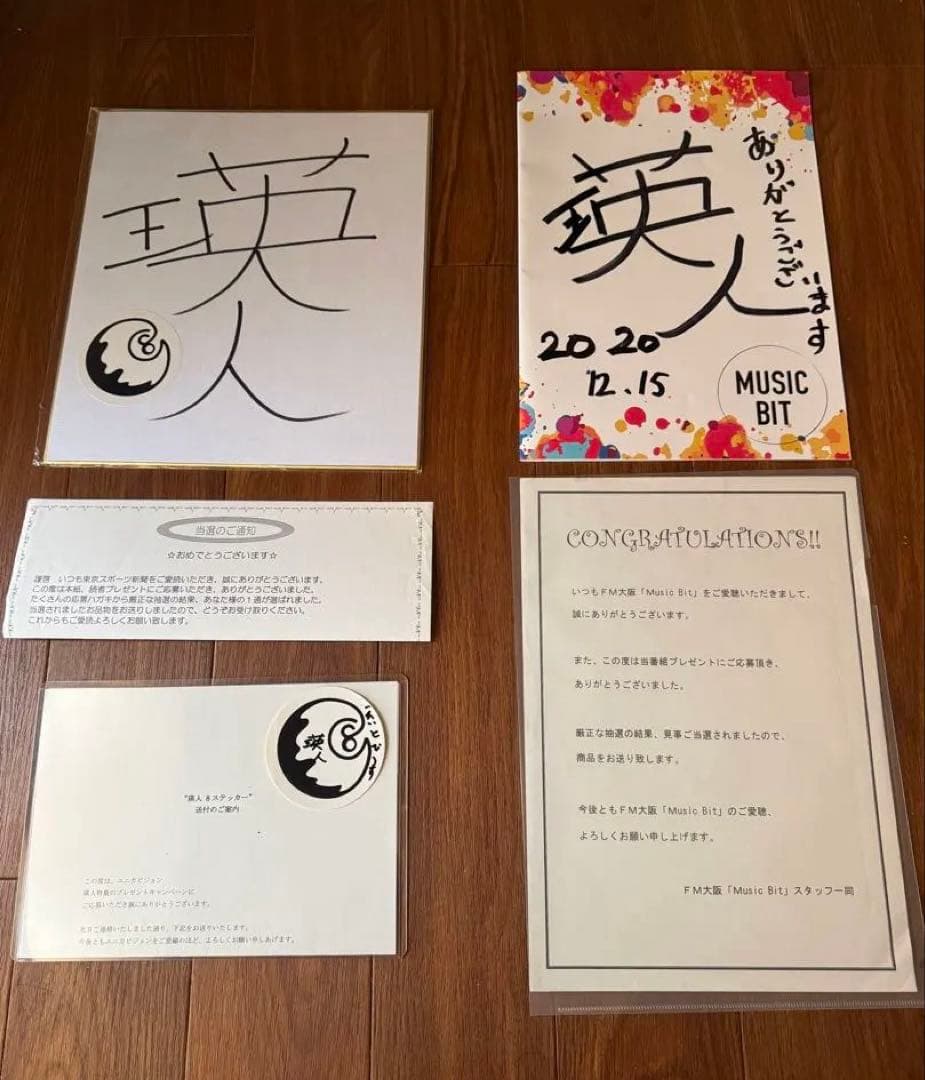 瑛
人
8
瑛
人
ありがとうございます
2020
12.15
MUSIC
BIT
当選のご通知
☆おめでとうございます☆
謹啓　いつも東京スポーツ新聞をご愛読いただき、誠にありがとうございます。
この度は本紙、読者プレゼントにご応募いただき、ありがとうございました。
たくさんの応募ハガキから厳正な抽選の結果、あなた様の1通が選ばれました。
当選されましたお品物をお送りしましたので、どうぞお受け取りください。
これからもご愛読よろしくお願い致します。
8
瑛人
えいとです
"瑛人 8ステッカー"
送付のご案内
この度は、ユニカビジョン
瑛人特集のプレゼントキャンペーンに
ご応募いただき誠にありがとうございます。
先日ご連絡いたしました通り、下記をお送りいたします。
今後ともユニカビジョンをご愛顧のほど、よろしくお願い申しあげます。
CONGRATULATIONS!!
いつもFM大阪「Music Bit」をご愛聴いただきまして、
誠にありがとうございます。
また、この度は当番組プレゼントにご応募頂き、
ありがとうございました。
厳正な抽選の結果、見事ご当選されましたので、
商品をお送り致します。
今後ともFM大阪「Music Bit」のご愛聴、
よろしくお願い申し上げます。
FM大阪「Music Bit」スタッフ一同